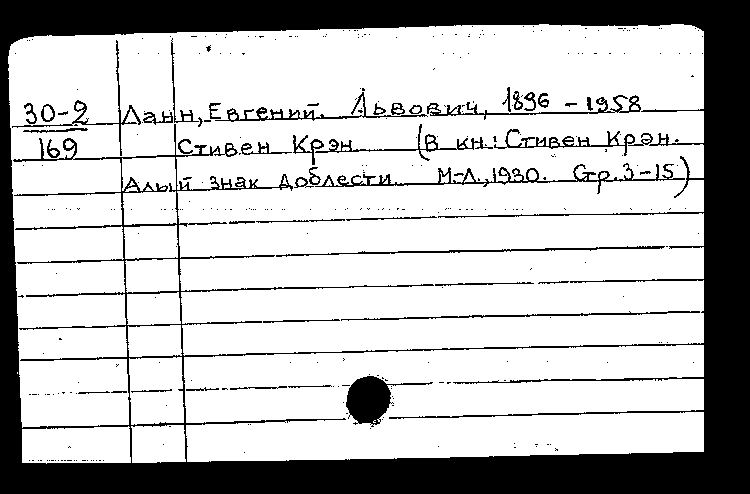 30-2 Ланн, Евгений Львович, 1896-1958
169 Стивен Крэн (В кн.: Стивен Крэн.
Алый знак доблести М-Л., 1930. Стр. 3-15)